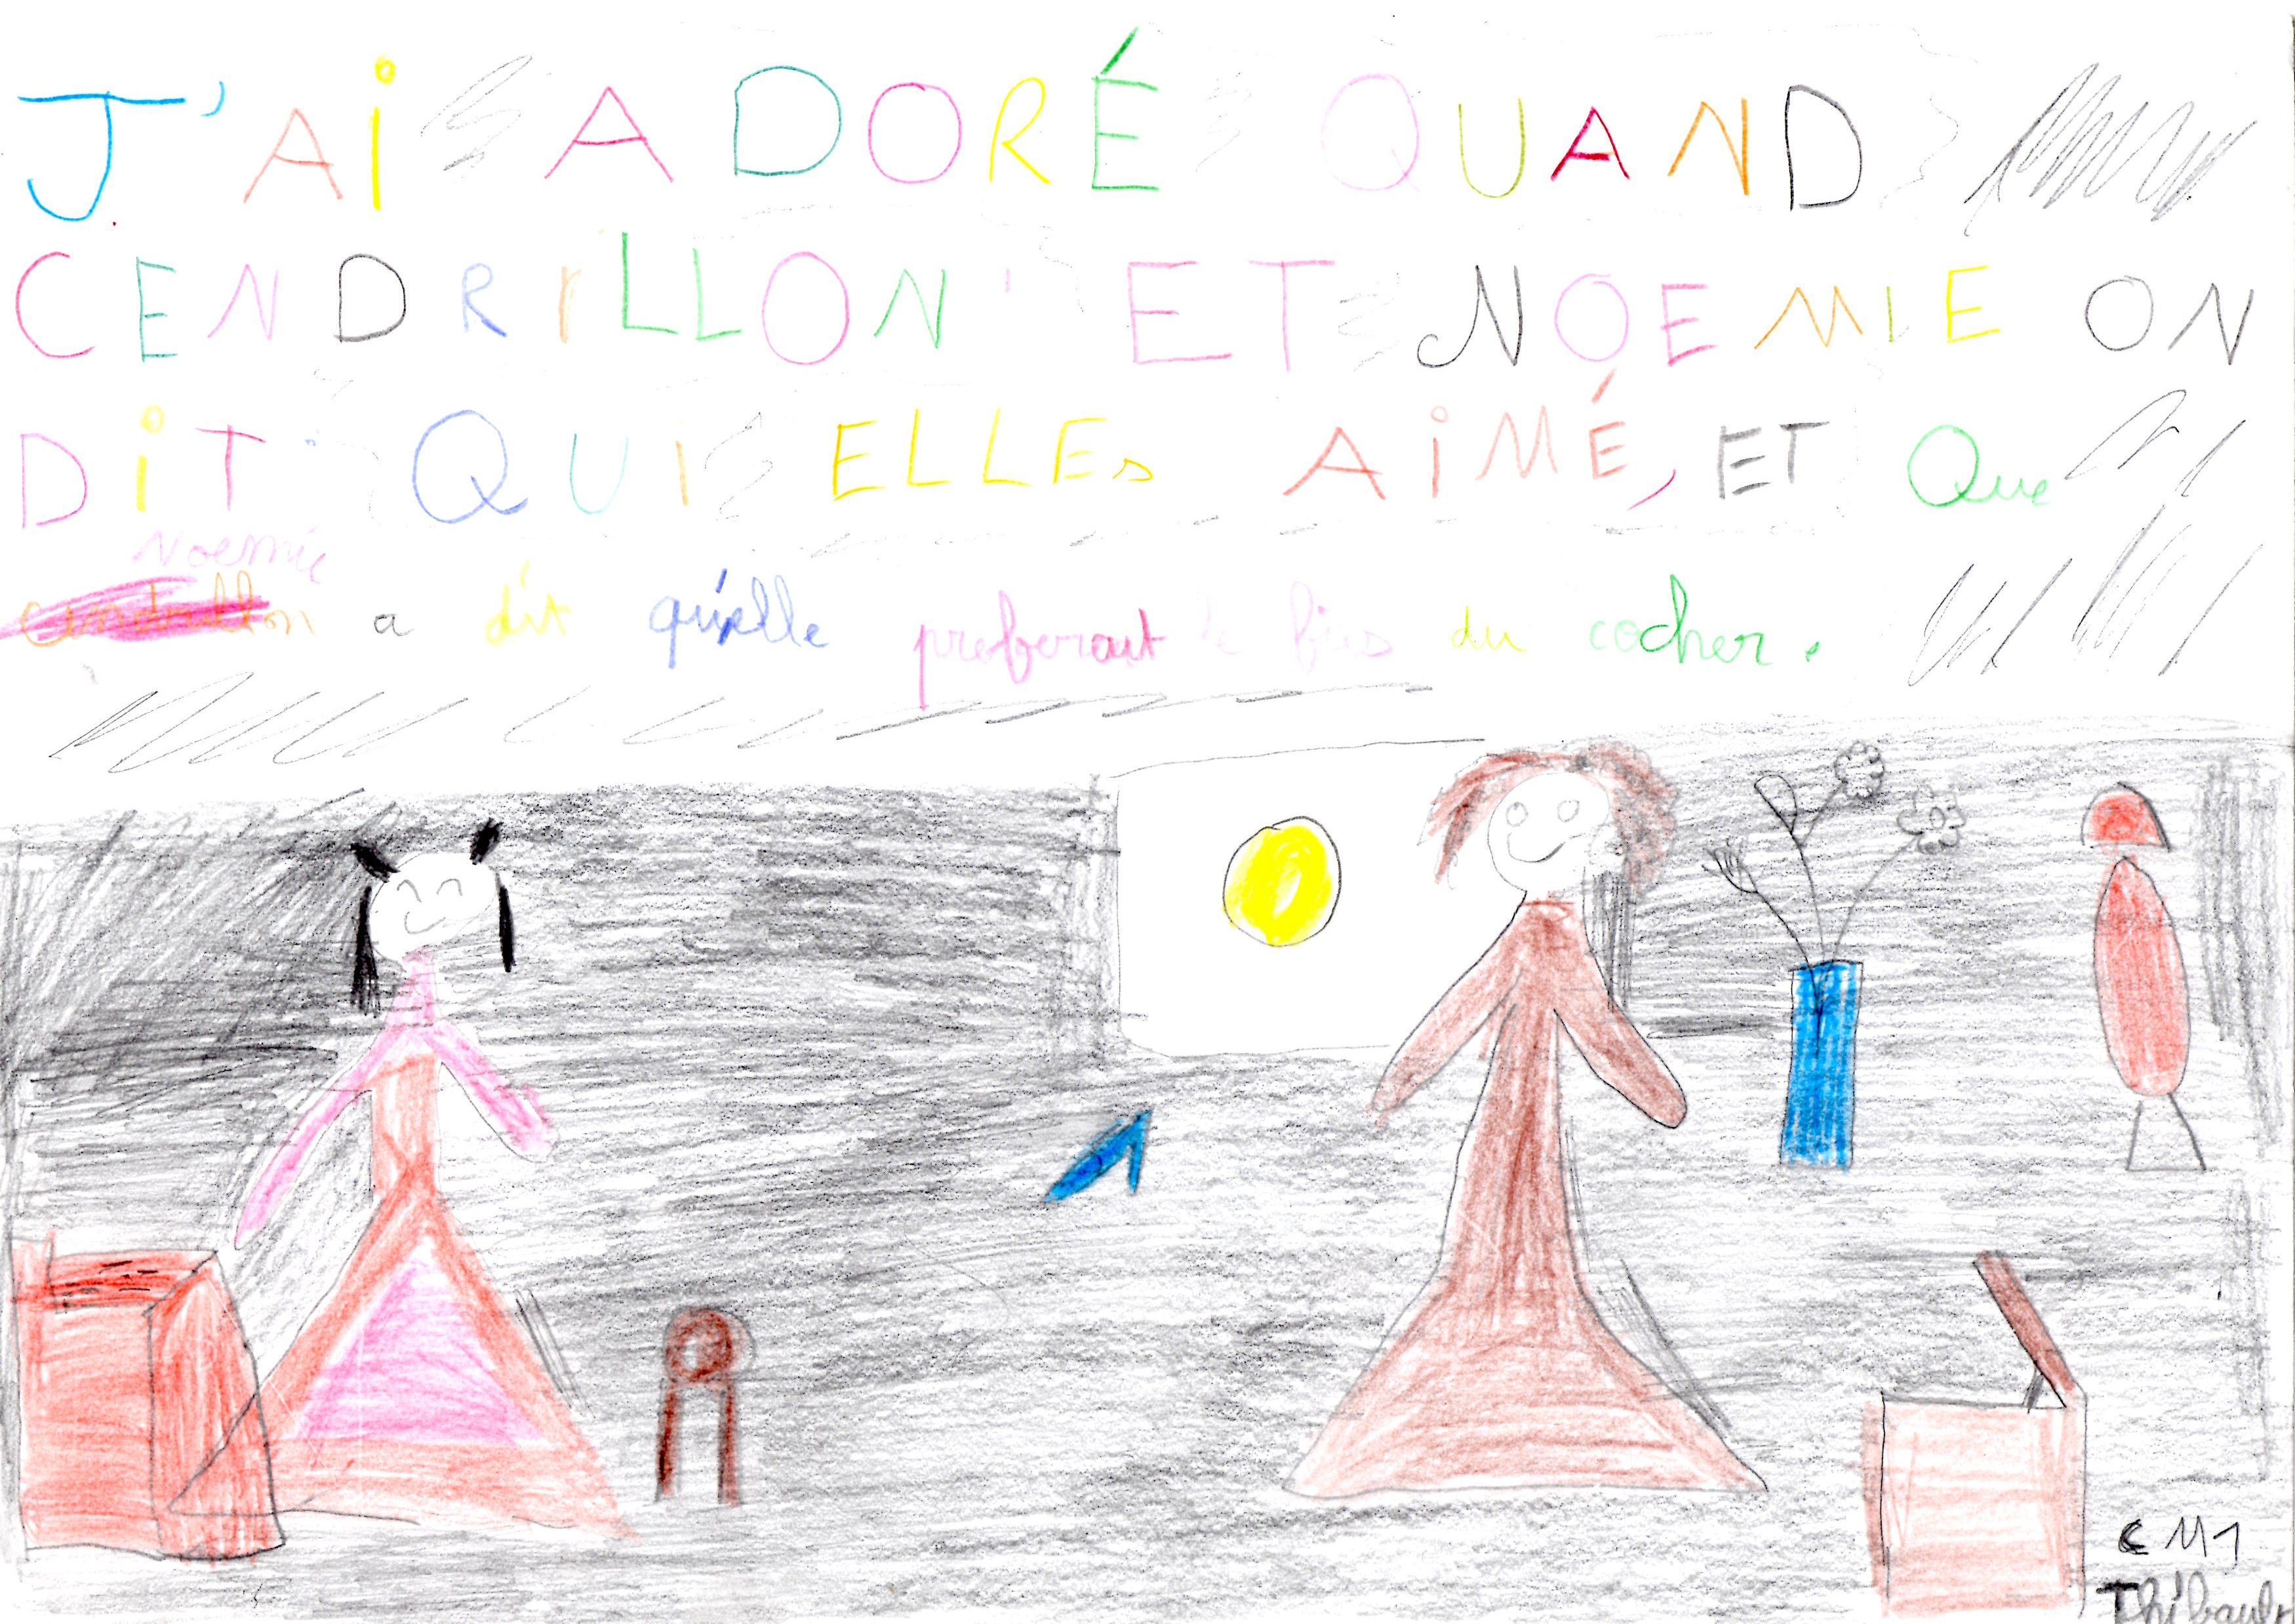 J'Ai ADORÉ QUAND
CENDRILLON ET NOEMIE ON
DiT QUI ELLEs AiMÉ, ET Que
Noemie
cendrillon a dit qu'elle preferait le fils du cocher.
CM1